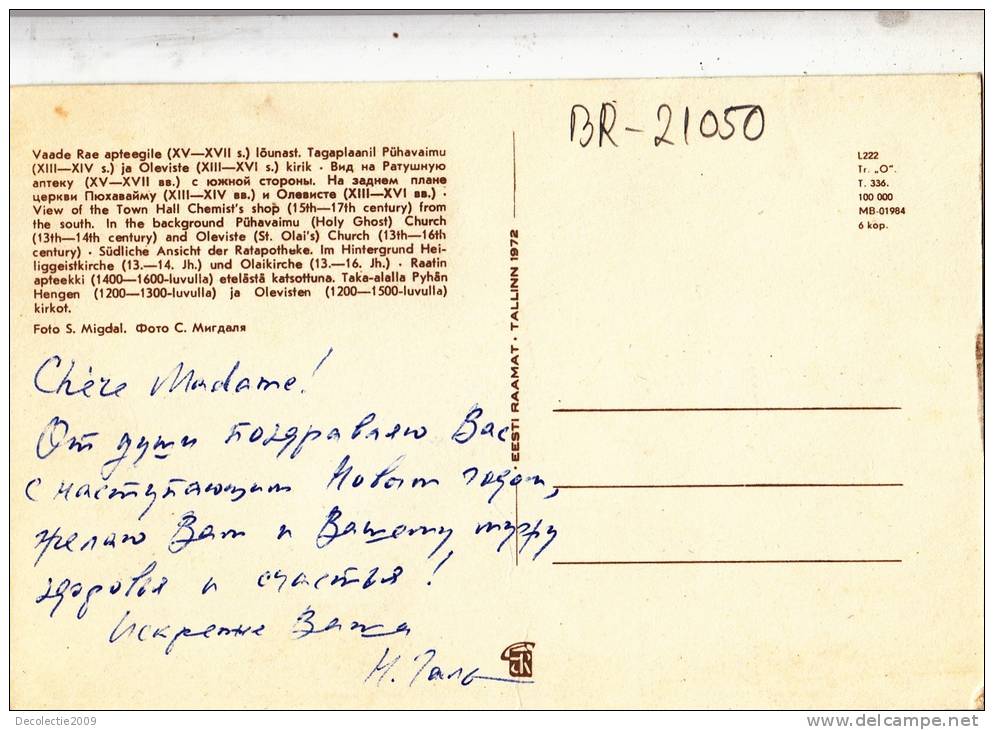 BR-21050
Vaade Rae apteegile (XV—XVII s.) lõunast. Tagaplaanil Pühavaimu
(XIII—XIV s.) ja Oleviste (XIII—XVI s.) kirik · Вид на Ратушную
аптеку (XV—XVII вв.) с южной стороны. На заднем плане
церкви Пюхавайму (XIII—XIV вв.) и Олевисте (XIII—XVI вв.) ·
View of the Town Hall Chemist's shop (15th—17th century) from
the south. In the background Pühavaimu (Holy Ghost) Church
(13th—14th century) and Oleviste (St. Olai's) Church (13th—16th
century) · Südliche Ansicht der Ratapotheke. Im Hintergrund Hei-
liggeistkirche (13.—14. Jh.) und Olaikirche (13.—16. Jh.) · Raatin
apteekki (1400—1600-luvulla) etelästä katsottuna. Taka-alalla Pyhän
Hengen (1200—1300-luvulla) ja Olevisten (1200—1500-luvulla)
kirkot.
Foto S. Migdal. Фото С. Мигдаля
L222
Tr. „O".
T. 336.
100 000
MB-01984
6 kop.
EESTI RAAMAT · TALLINN 1972
Chère Madame!
От души поздравляю Вас
с наступающим Новым годом,
желаю Вам и Вашему мужу
здоровья и счастья!
Искренне Ваша
Н. Галь
Decolectie2009
www.delcampe.net